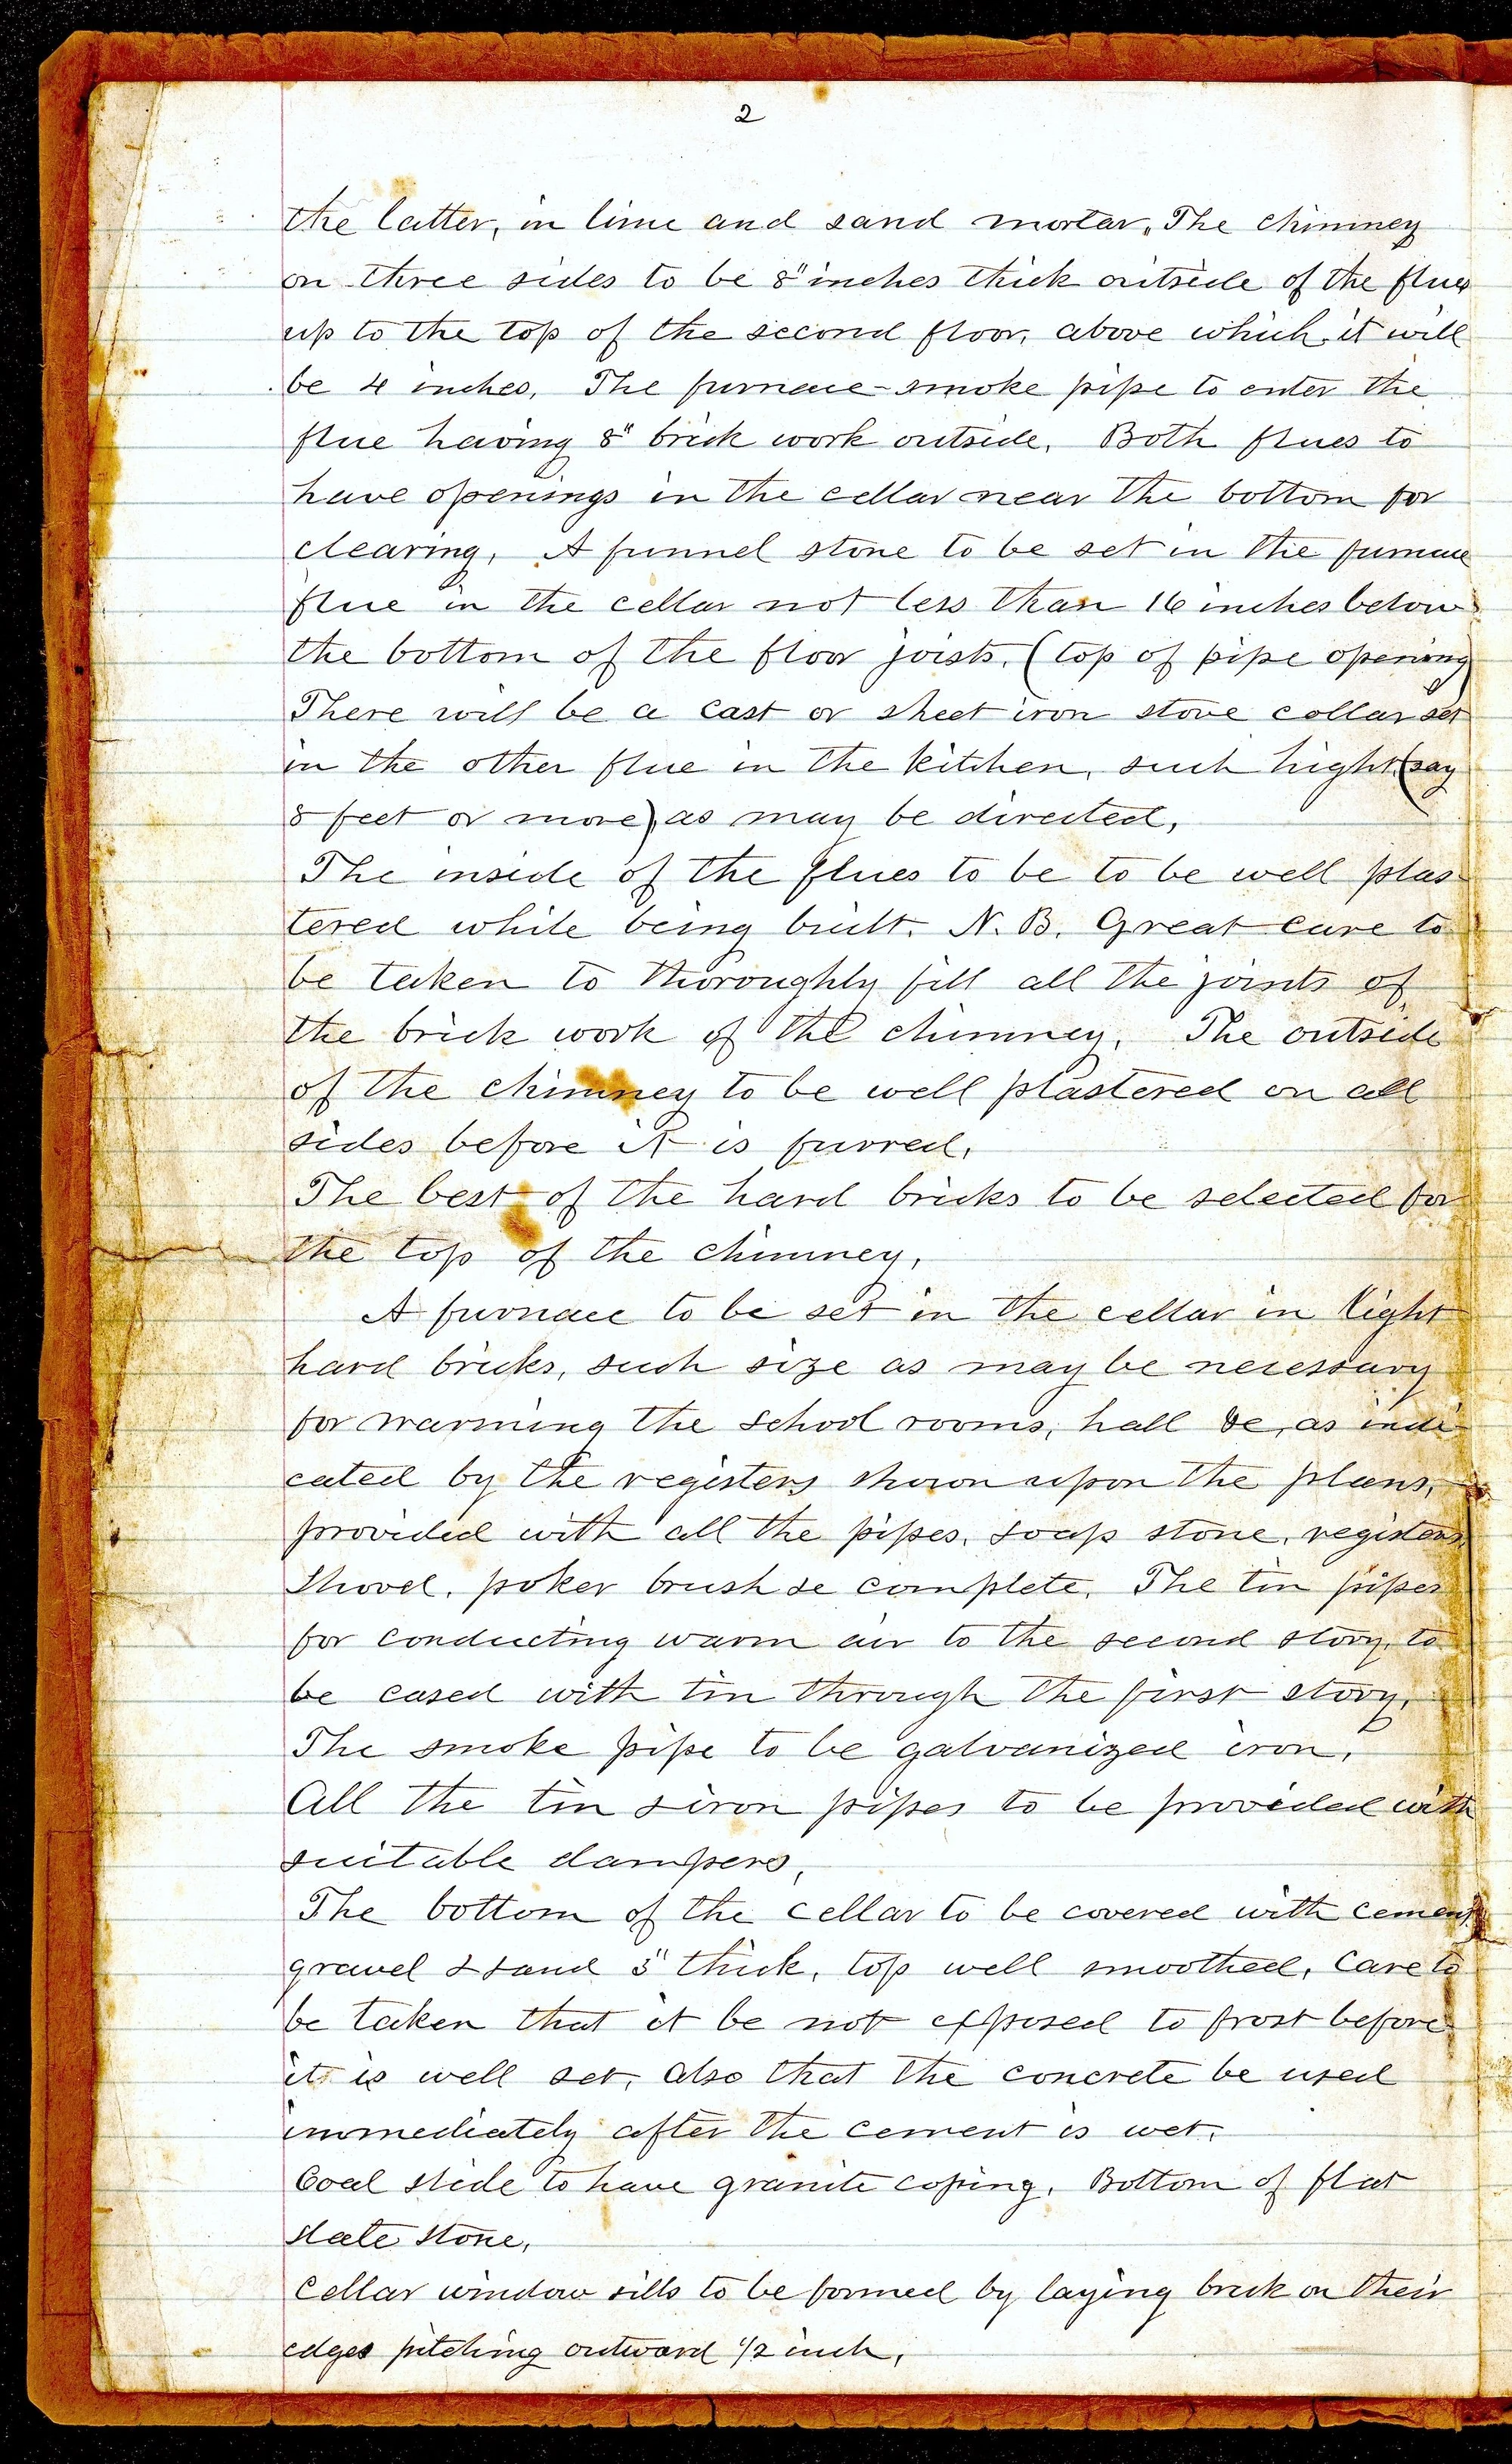 2
the latter, in lime and sand mortar. The chimney
on three sides to be 8" inches thick outside of the flues
up to the top of the second floor, above which it will
be 4 inches. The furnace-smoke pipe to enter the
flue having 8" brick work outside. Both flues to
have openings in the cellar near the bottom for
clearing. A funnel stone to be set in the furnace
flue in the cellar not less than 16 inches below
the bottom of the floor joists. (top of pipe opening)
There will be a cast or sheet iron stove collar set
in the other flue in the kitchen, such hight (say
8 feet or more) as may be directed.
The inside of the flues to be to be well plas-
tered while being built. N.B. Great care to
be taken to thoroughly fill all the joints of
the brick work of the chimney. The outside
of the chimney to be well plastered on all
sides before it is furred.
The best of the hard bricks to be selected for
the top of the chimney.
A furnace to be set in the cellar in light
hard bricks, such size as may be necessary
for warming the school rooms, hall &c, as indi-
cated by the registers shown upon the plans,
provided with all the pipes, soap stone, registers
shovel, poker brush &c complete. The tin pipes
for conducting warm air to the second story, to
be cased with tin through the first story.
The smoke pipe to be galvanized iron.
All the tin & iron pipes to be provided with
suitable dampers.
The bottom of the cellar to be covered with cement
gravel & sand 3" thick, top well smoothed. Care to
be taken that it be not exposed to frost before
it is well set, also that the concrete be used
immediately after the cement is wet.
Coal slide to have granite coping. Bottom of flat
slate stone.
Cellar window sills to be formed by laying brick on their
edges pitching outward 1/2 inch.